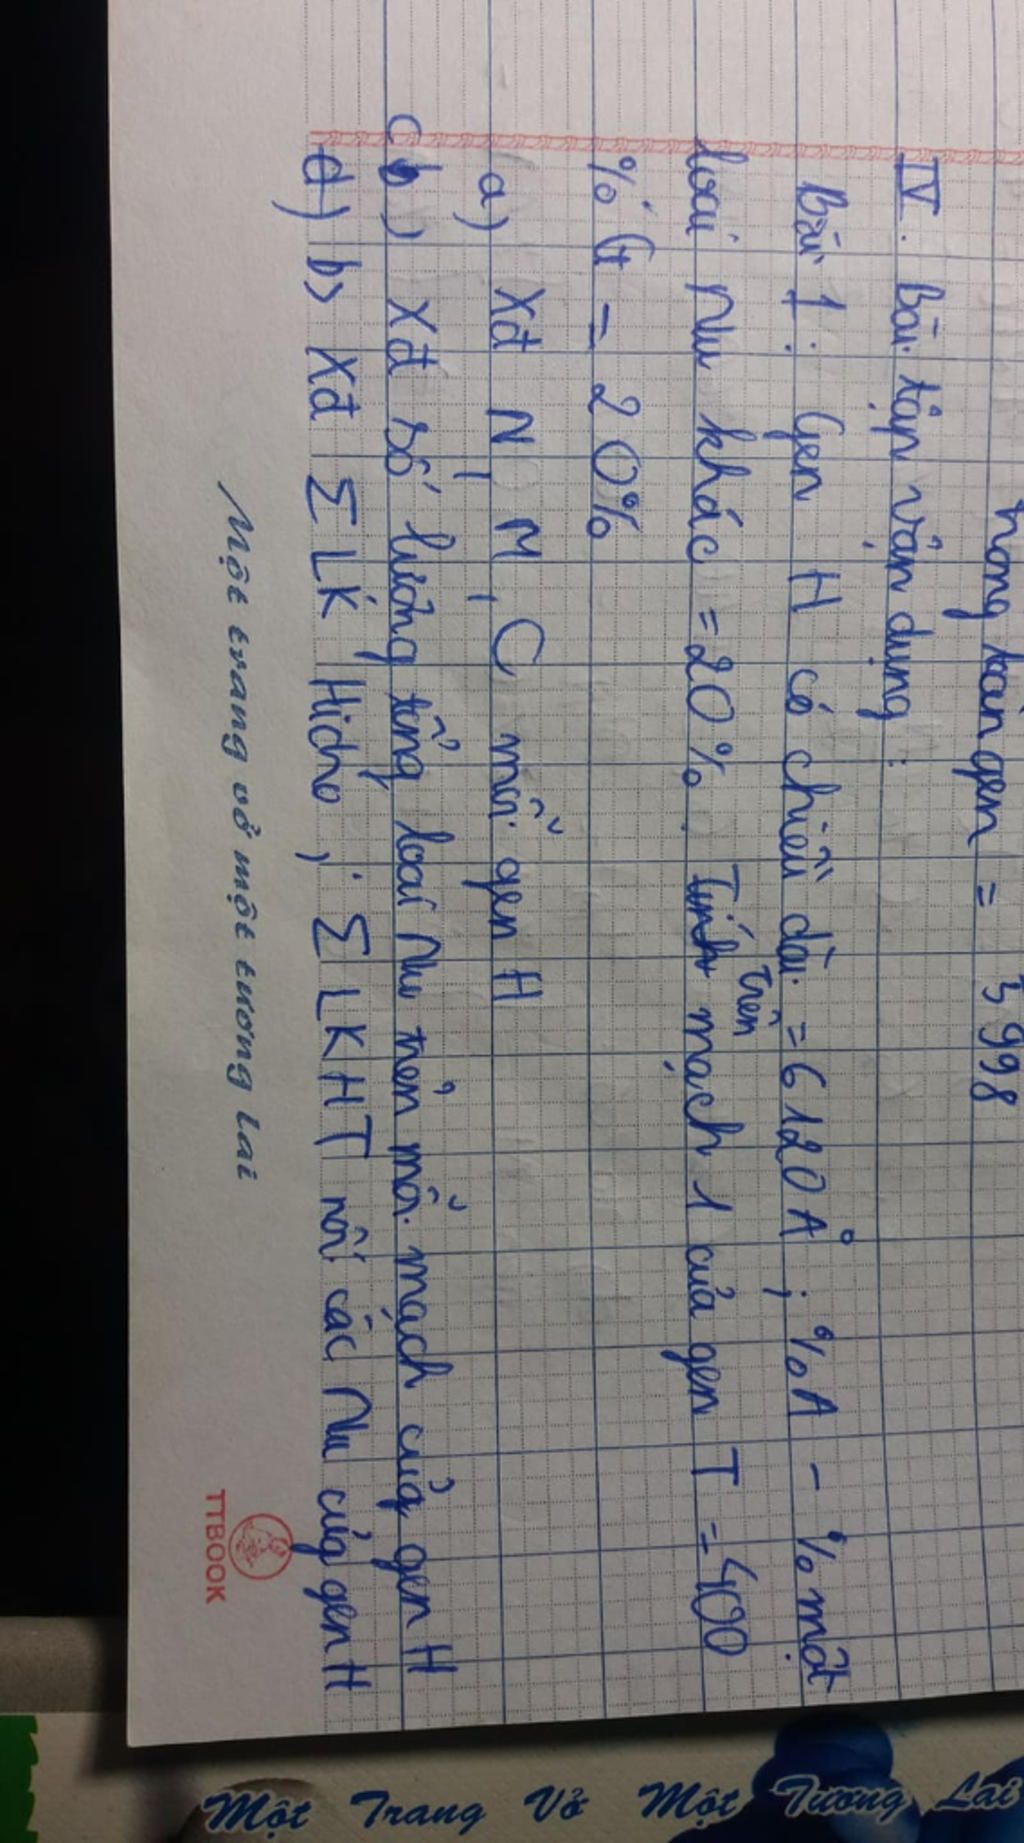 trong toàn gen = 3998
IV. Bài tập vận dụng:
Bài 1: Gen H có chiều dài = 6120 Å ; %A - % một
loại Nu khác = 20%. Trên mạch 1 của gen T = 400
% G = 20%
a) Xđ N, M, C mỗi gen H
c) Xđ số lượng từng loại Nu trên mỗi mạch của gen H
b) Xđ Σ LK Hidro, Σ LKHT nối các Nu của gen H
Một trang vở một tương lai
TTBOOK
Một Trang Vở Một Tương Lai